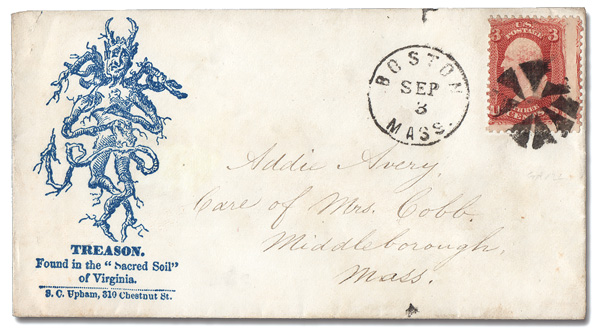 TREASON.
Found in the "Sacred Soil"
of Virginia.
S. C. Upham, 310 Chestnut St.
BOSTON
SEP
3
MASS.
3 3
U.S. POSTAGE
THREE
CENTS
Addie Avery,
Care of Mrs. Cobb.
Middleborough,
Mass.